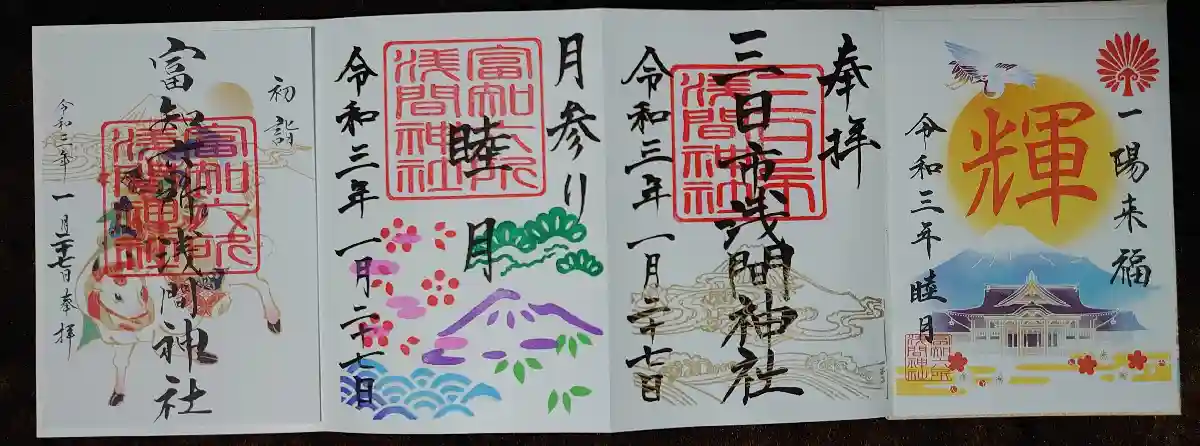 一陽来福
輝
令和三年睦月
奉拝
三日市浅間神社
三日市
淺間神社
令和三年一月二十七日
月参り
睦月
富知六所
淺間神社
令和三年一月二十七日
初詣
富知六所浅間神社
富知六所
淺間神社
令和三年一月二十七日奉拝